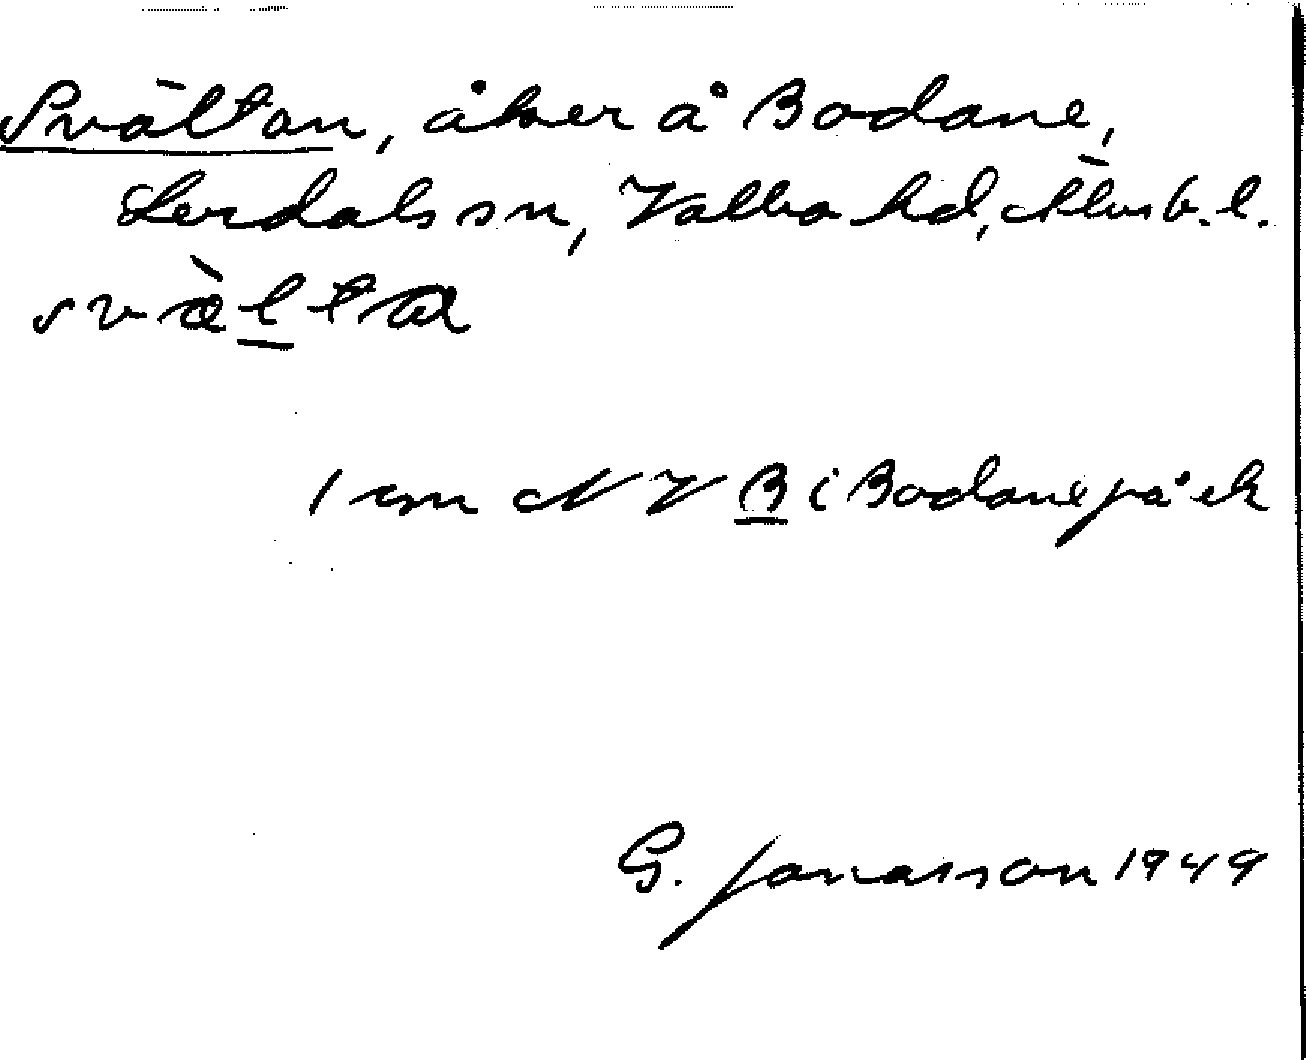 Svältan, åker å Bodane,
Lerdals sn, Valbo hd, Älvsb. l.
svæ̀l̲ta
1 cm NV B i Bodane på ek
G. Jonasson 1949